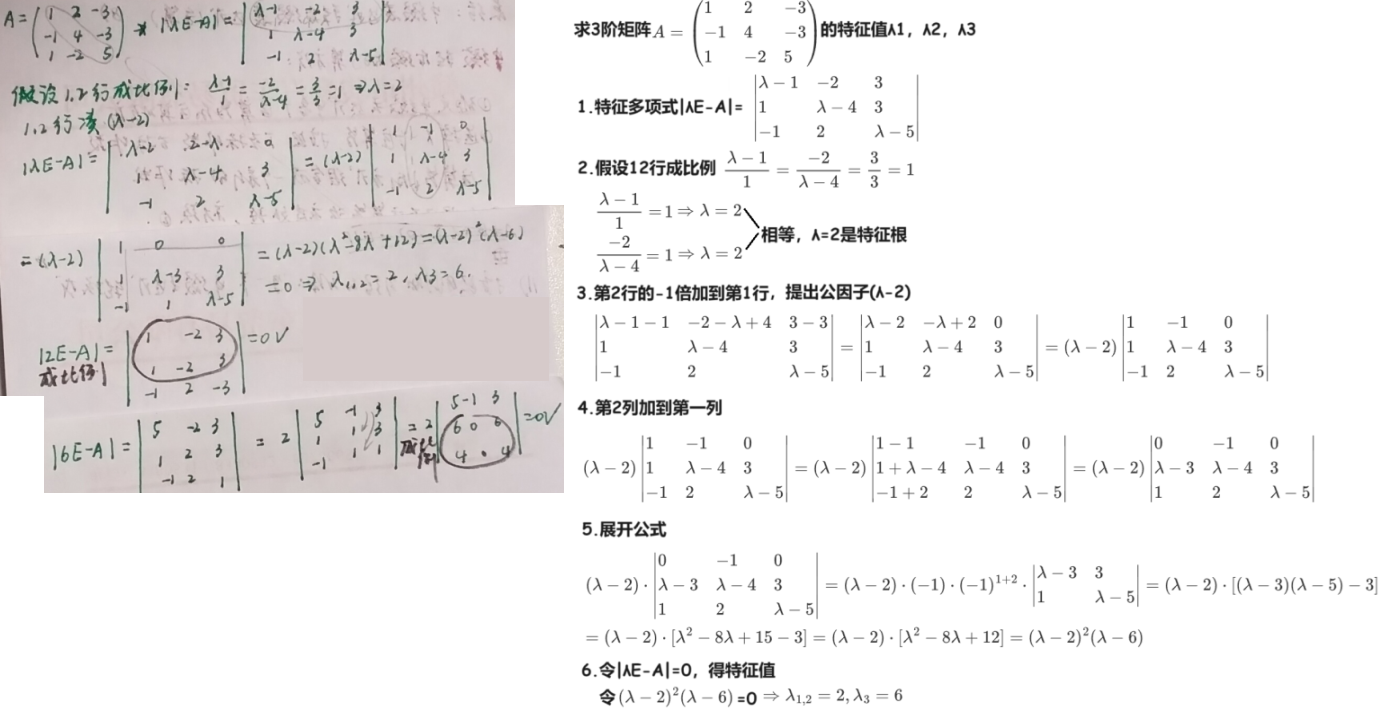 A=(1 2 -3
-1 4 -3
1 -2 5) |λE-A|=|λ-1 -2 3
1 λ-4 3
-1 2 λ-5|
假设1.2行成比例: (λ-1)/1=-2/(λ-4)=3/3=1⇒λ=2
1.2行凑(λ-2)
|λE-A|=|λ-2 2-λ 0
1 λ-4 3
-1 2 λ-5|=(λ-2)|1 -1 0
1 λ-4 3
-1 2 λ-5|
=(λ-2)|1 0 0
1 λ-3 3
-1 1 λ-5|=(λ-2)(λ²-8λ+12)=(λ-2)²(λ-6)
=0⇒λ1,2=2,λ3=6.
|2E-A|=|1 -2 3
1 -2 3
-1 2 -3|=0√
成比例
|6E-A|=|5 -2 3
1 2 3
-1 2 1|=2|5 -1 3
1 1 3
-1 1 1|=2|5 -1 3
6 0 6
4 0 4|=0√
成比例
求3阶矩阵A=(1 2 -3
-1 4 -3
1 -2 5)的特征值λ1，λ2，λ3
1.特征多项式|λE-A|=|λ-1 -2 3
1 λ-4 3
-1 2 λ-5|
2.假设12行成比例 (λ-1)/1=-2/(λ-4)=3/3=1
(λ-1)/1=1⇒λ=2
-2/(λ-4)=1⇒λ=2
相等，λ=2是特征根
3.第2行的-1倍加到第1行，提出公因子(λ-2)
|λ-1-1 -2-λ+4 3-3
1 λ-4 3
-1 2 λ-5|=|λ-2 -λ+2 0
1 λ-4 3
-1 2 λ-5|=(λ-2)|1 -1 0
1 λ-4 3
-1 2 λ-5|
4.第2列加到第一列
(λ-2)|1 -1 0
1 λ-4 3
-1 2 λ-5|=(λ-2)|1-1 -1 0
1+λ-4 λ-4 3
-1+2 2 λ-5|=(λ-2)|0 -1 0
λ-3 λ-4 3
1 2 λ-5|
5.展开公式
(λ-2)·|0 -1 0
λ-3 λ-4 3
1 2 λ-5|=(λ-2)·(-1)·(-1)^{1+2}·|λ-3 3
1 λ-5|=(λ-2)·[(λ-3)(λ-5)-3]
=(λ-2)·[λ²-8λ+15-3]=(λ-2)·[λ²-8λ+12]=(λ-2)²(λ-6)
6.令|λE-A|=0，得特征值
令(λ-2)²(λ-6)=0⇒λ1,2=2,λ3=6